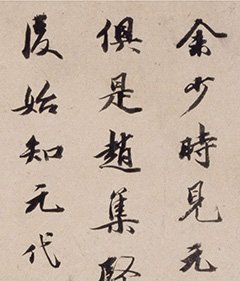 余少時見元
俱是趙集賢
後始知元代